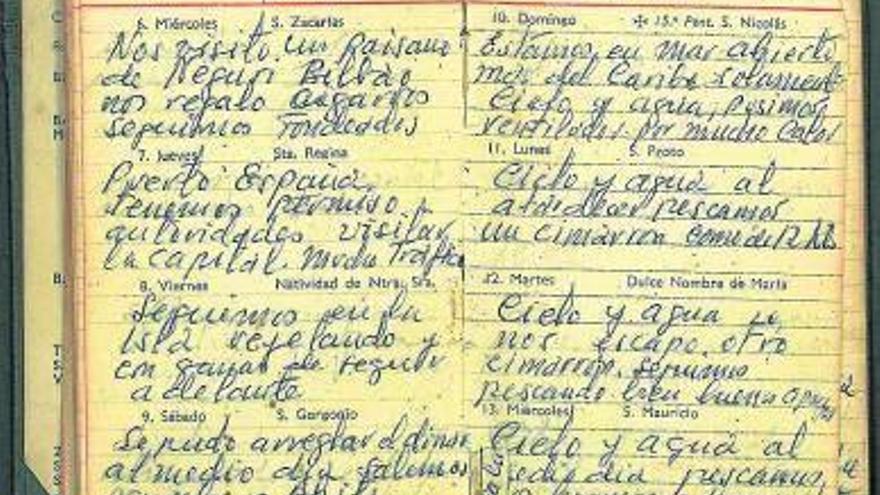 6. Miércoles S. Zacarías
Nos visito un paisano
de Neguri Bilbao
nos regalo cigarros
seguimos fondeados
7. Jueves Sta. Regina
Puerto España
tenemos permiso
autoridades visitar
la capital. mucho Trafico
8. Viernes Natividad de Ntra. Sra.
Seguimos en la
isla y
en ganas de seguir
adelante
9. Sábado S. Gorgonio
Se pudo arreglar el dinar
al medio dia salimos
10. Domingo ✠ 15.ª Pent. S. Nicolás
Estamos en mar abierto
mar del Caribe solament
Cielo y agua, pusimos
ventilador por mucho calor
11. Lunes S. Proto
Cielo y agua al
atardecer pescamos
un cimarron como de 12 kl.
12. Martes Dulce Nombre de María
Cielo y agua
nos escapo otro
cimarron. seguimos
pescando bien
13. Miércoles S. Mauricio
Cielo y agua al
dia pescamos